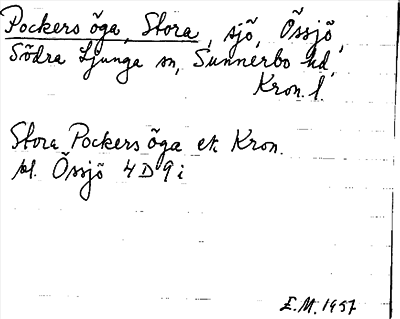 Pockers öga, Stora, sjö, Össjö,
Södra Ljunga sn, Sunnerbo hd,
Kron. l.
Stora Pockers öga ek Kron.
bl. Össjö 4D9i
E.M. 1957